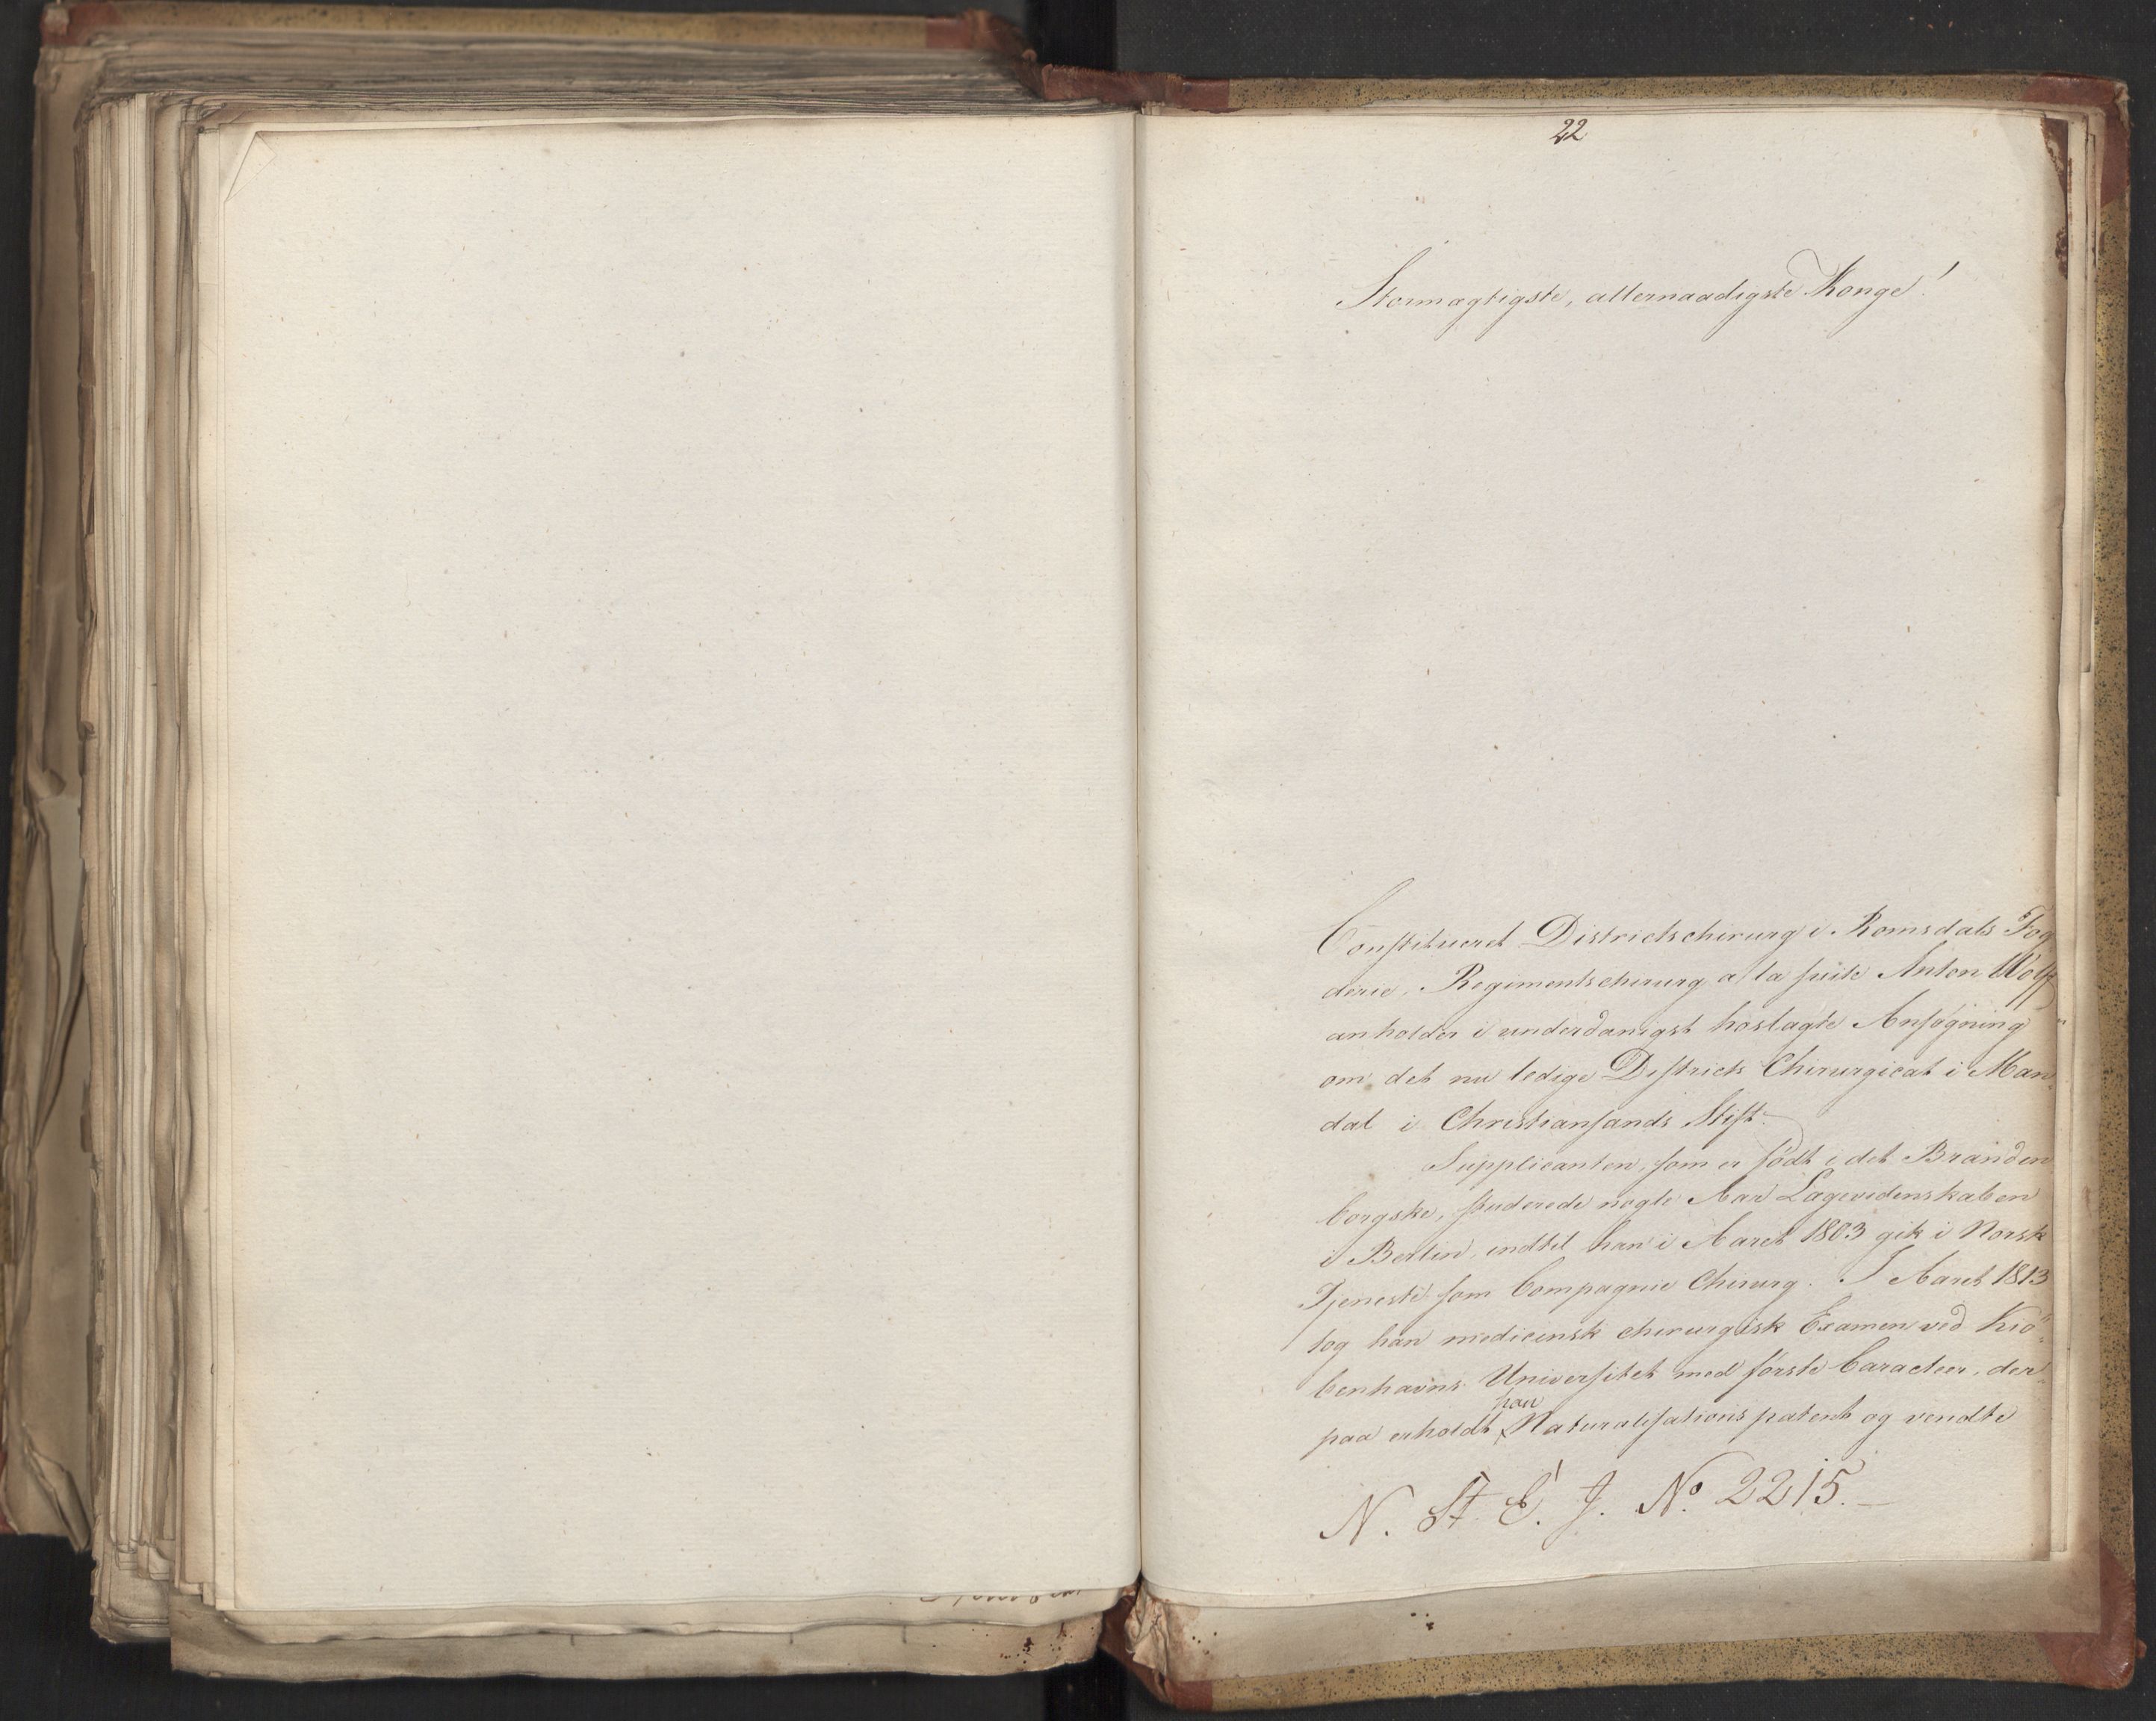 22
Stormægtigste, allernaadigste Konge!
Constitueret Districtschirurg i Romsdals Fog
derie, Regimentschirurg a la suite Anton Wolff
anholder i underdanigst hoslagte Ansøgning
om det nu ledige Districts Chirurgicat i Man-
dal i Christiansands Stift.
Supplicanten, som er født i det Branden
borgske, studerede nogle Aar Lægevidenskaben
i Berlin, indtil han i Aaret 1803 gik i Norsk
Tjeneste som Compagnie Chirurg. I Aaret 1813
tog han medicinsk chirurgisk Examen ved Kiø-
benhavns Universitet med første Caracteer, der-
paa erholdt han Naturalisations patent og vendte
N. St. E. J. No 2215.-